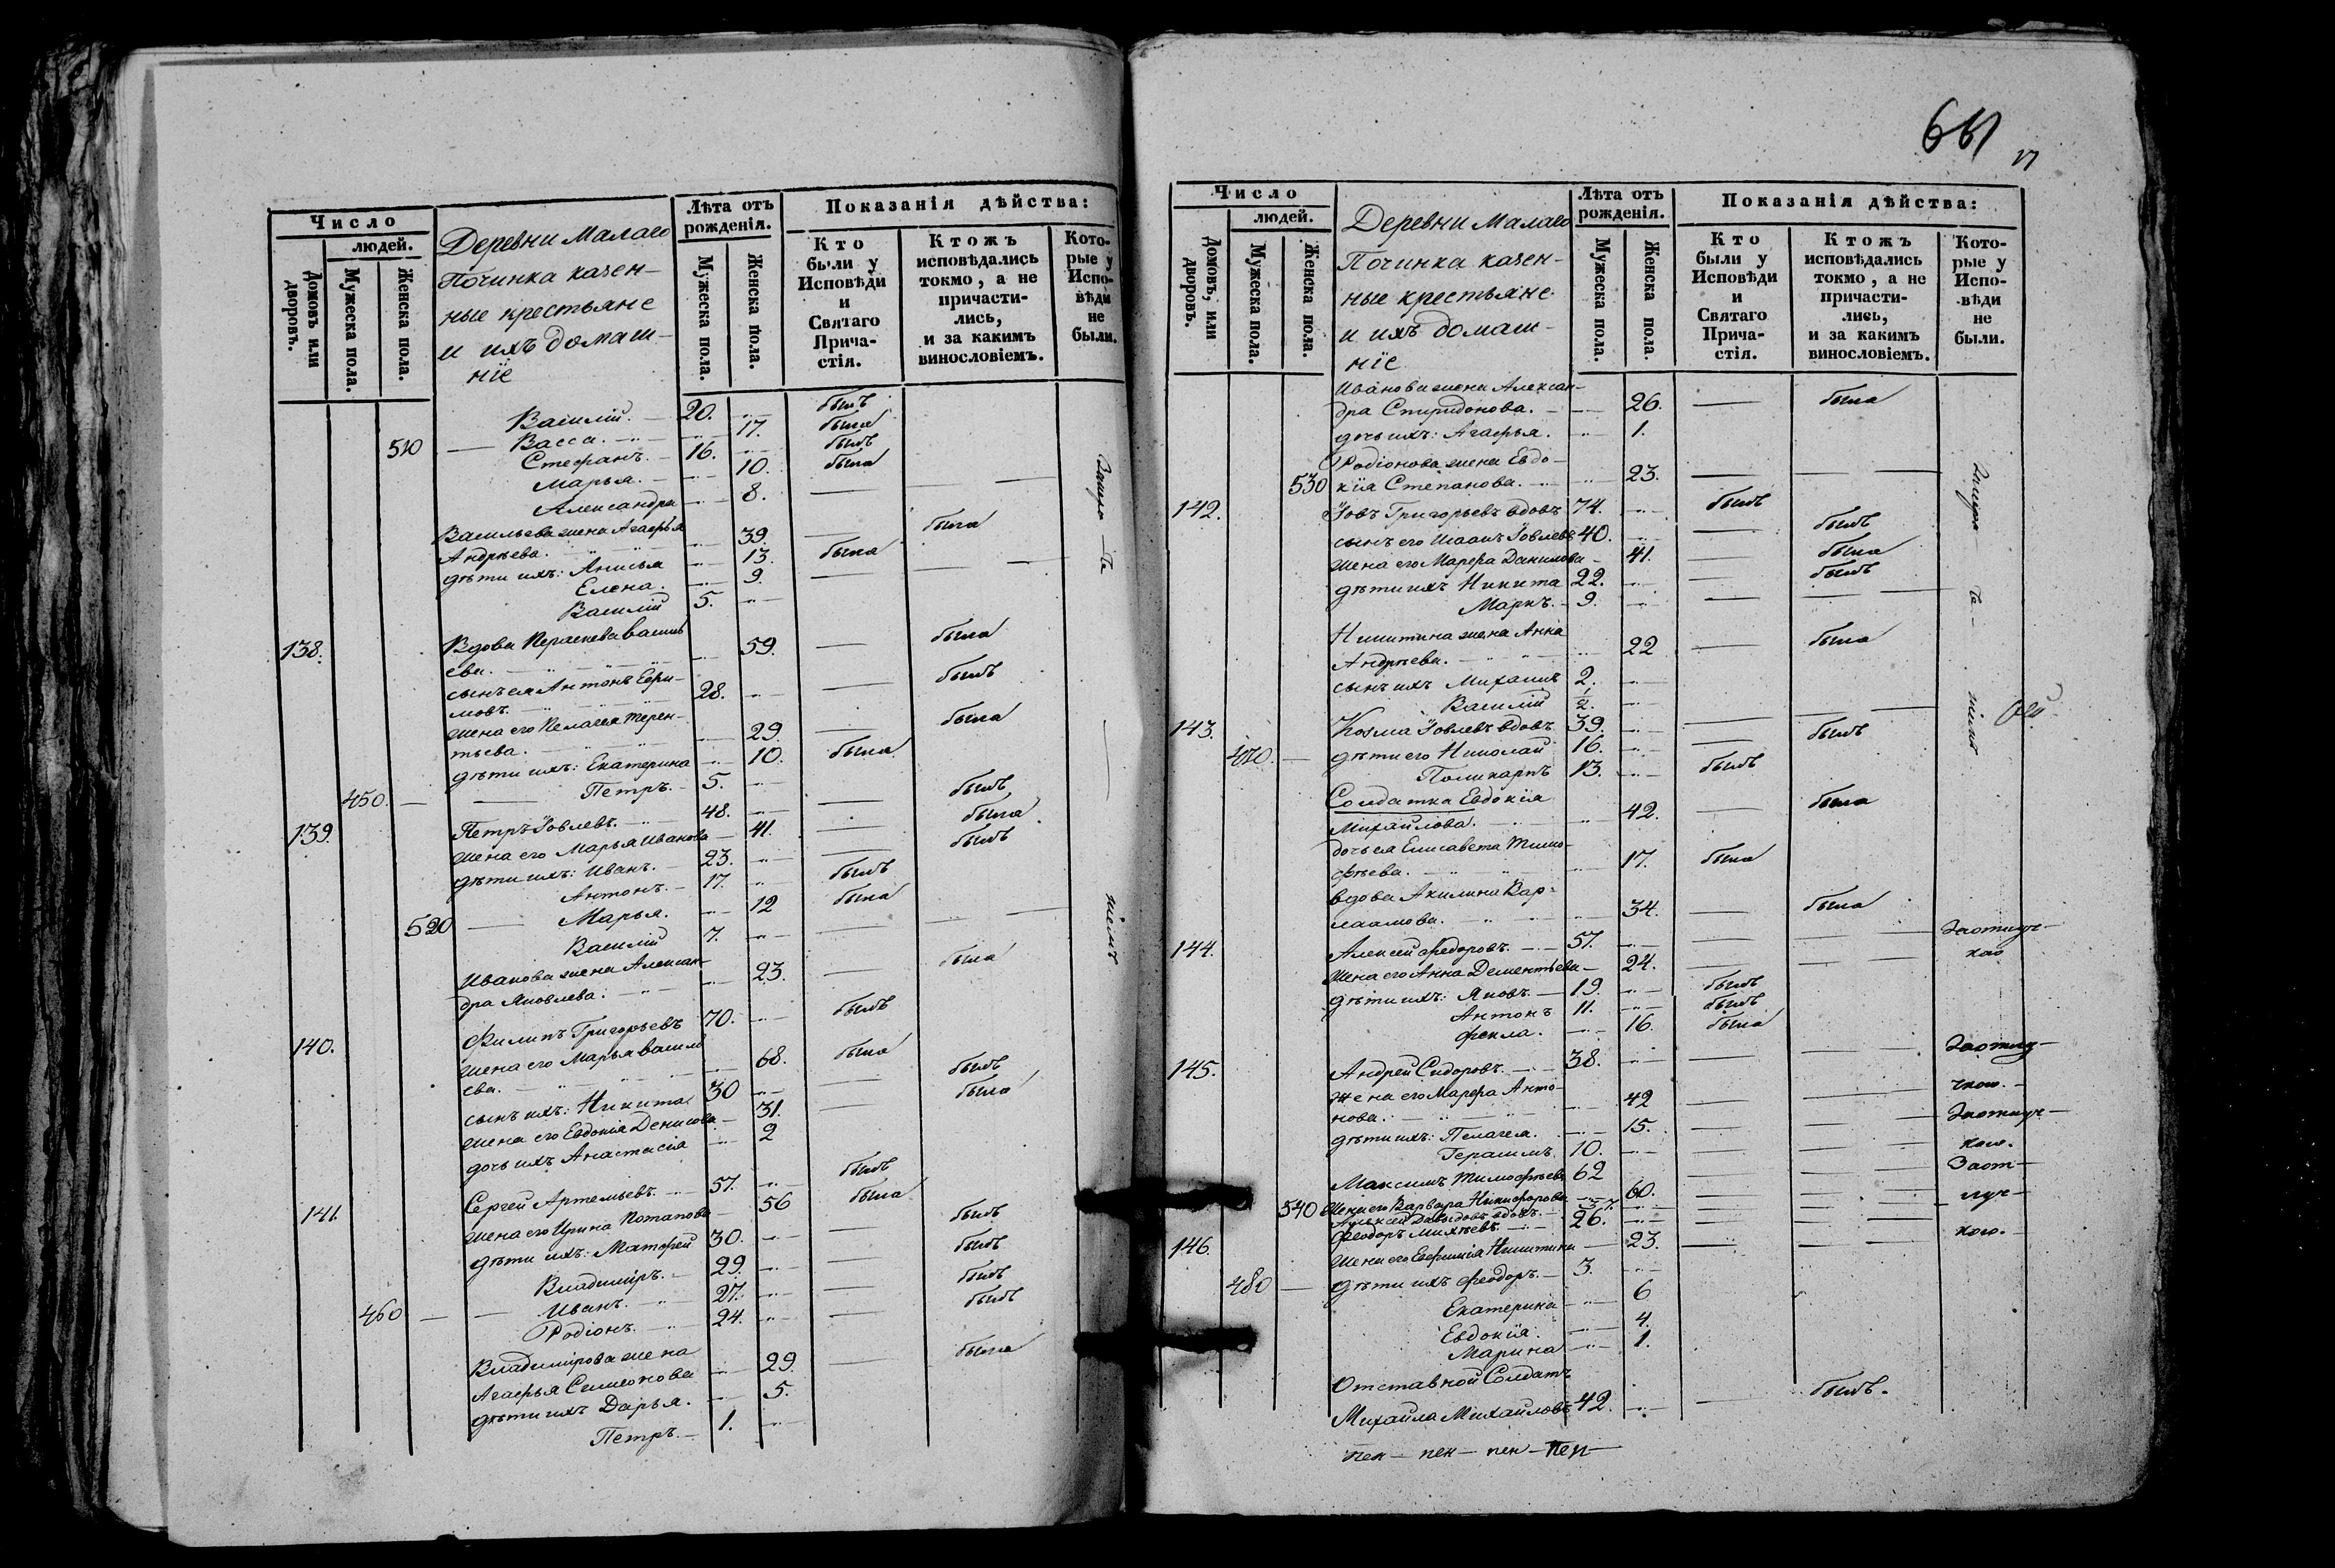 Число
людей.
Домовъ или дворовъ.
Мужеска пола.
Женска пола.
Деревни Малаго
Починка казен-
ные крестьяне
и ихъ домаш-
ніе
Лѣта отъ рожденія.
Мужеска пола.
Женска пола.
Показанія дѣйства:
Кто были у Исповѣди и Святаго Прича-стія.
Ктожъ исповѣдались токмо, а не причасти-лись, и за какимъ винословіемъ.
Кото-рые у Испо-вѣди не были.
Василій. 20. былъ
510 Васса. 17. была
Стефанъ. 16. былъ
Марья. 10. была
Александра 8.
Васильева жена Агафья
Андреева. 39. была
дѣти ихъ: Анисья 13. была
Елена. 9.
Василій 5.
138. Вдова Параскева Василь
ева. 59. была
сынъ ея Антонъ Ефи-
мовъ. 28. былъ
жена его Пелагея Терен-
тьева. 29. была
дѣти ихъ: Екатерина 10. была
450. Петръ. 5.
139. Петръ Іовлевъ. 48. былъ
жена его Марья Иванова 41. была
дѣти ихъ: Иванъ. 23. былъ
Антонъ. 17. былъ
520 Марья. 12 была
Василій 7.
Иванова жена Алексан-
дра Яковлева. 23. была
140. Филипъ Григорьевъ 70. былъ
жена его Марья Василь
ева. 68. была
сынъ ихъ: Никита 30 былъ
жена его Евдокія Денисова 31. была
дочь ихъ Анастасія 2
141. Сергей Артемьевъ. 57. былъ
жена его Ирина Потапова 56 была
дѣти ихъ: Матфей 30. былъ
Владиміръ. 29. былъ
460 Иванъ. 27. былъ
Родіонъ. 24. былъ
Владимірова жена
Агафья Семенова 29. была
дѣти ихъ Дарья. 5.
Петръ. 1.
17
Число
людей.
Домовъ, или дворовъ.
Мужеска пола.
Женска пола.
Деревни Малаго
Починка казен-
ные крестьяне
и ихъ домаш-
ніе
Лѣта отъ рожденія.
Мужеска пола.
Женска пола.
Показанія дѣйства:
Кто были у Исповѣди и Святаго Прича-стія.
Ктожъ исповѣдались токмо, а не причасти-лись, и за какимъ винословіемъ.
Кото-рые у Испо-вѣди не были.
Иванова жена Алексан-
дра Спиридонова. 26. была
дочь ихъ: Агафья. 1.
Родіонова жена Евдо-
530 кія Степанова. 23.
142. Іовъ Григорьевъ вдовъ 74. былъ
сынъ его Іоаннъ Іовлевъ 40. былъ
жена его Марфа Данилова 41. была
дѣти ихъ Никита 22. былъ
Маркъ. 9.
Никитина жена Анна
Андреева. 22 была
сынъ ихъ Михаилъ 2.
Василій ½.
143. Козма Іовлевъ вдовъ 39.
470. дѣти его Николай 16. былъ
Поликарпъ 13. былъ
Солдатка Евдокія
Михайлова. 42. была
дочь ея Елисавета Тимо-
феева. 17. была
вдова Акилина Вар-
лаамова. 34. была
144. Алексей Федоровъ. 57.
жена его Анна Дементьева 24.
дѣти ихъ: Яковъ. 19. былъ
Антонъ 11. былъ
Фекла. 16. была
145. Андрей Сидоровъ. 38.
жена его Марфа Анто-
нова. 42
дѣти ихъ: Пелагея. 15.
Герасимъ 10.
Максимъ Тимофеевъ 62
540 жена его Варвара Никифорова 60.
Алексей Давыдовъ вдовъ.
146. Феодоръ 26.
жена его Евфимія Никитина 23.
480 дѣти ихъ Феодоръ. 3.
Екатерина 6
Евдокія. 4.
Марина 1.
Отставной Солдатъ
Михайла Михайловъ 42. былъ.
За отлуч-
кою.